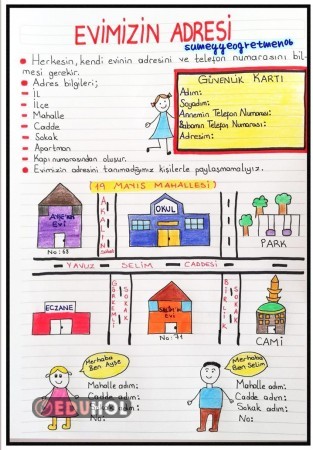 EVİMİZİN ADRESİ
sumeyyeogretmen06
Herkesin, kendi evinin adresini ve telefon numarasını bil-
mesi gerekir.
Adres bilgileri;
İL
İlçe
Mahalle
Cadde
Sokak
Apartman
Kapı numarasından oluşur.
Evimizin adresini tanımadığımız kişilerle paylaşmamalıyız.
GÜVENLİK KARTI
Adım:
Soyadım:
Annemin Telefon Numarası:
Babamın Telefon Numarası:
Adresim:
(19 MAYIS MAHALLESİ)
Ayşe'nin
Evi
No:68
OKUL
PARK
YAVUZ SELİM CADDESİ
ECZANE
SOKAK
Selim'in
Evi
No:71
BİRLİK
SOKAK
CAMİ
Merhaba
Ben Ayşe
Mahalle adım:
Cadde adım:
Sokak adım:
No:
Merhaba
Ben Selim
Mahalle adım:
Cadde adım:
Sokak adım:
No:
EDUHOL